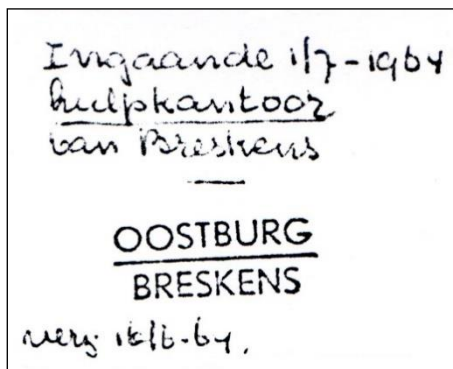 Ingaande 1/7-1964
hulpkantoor
van Breskens
OOSTBURG
BRESKENS
verz. 16/6-64.